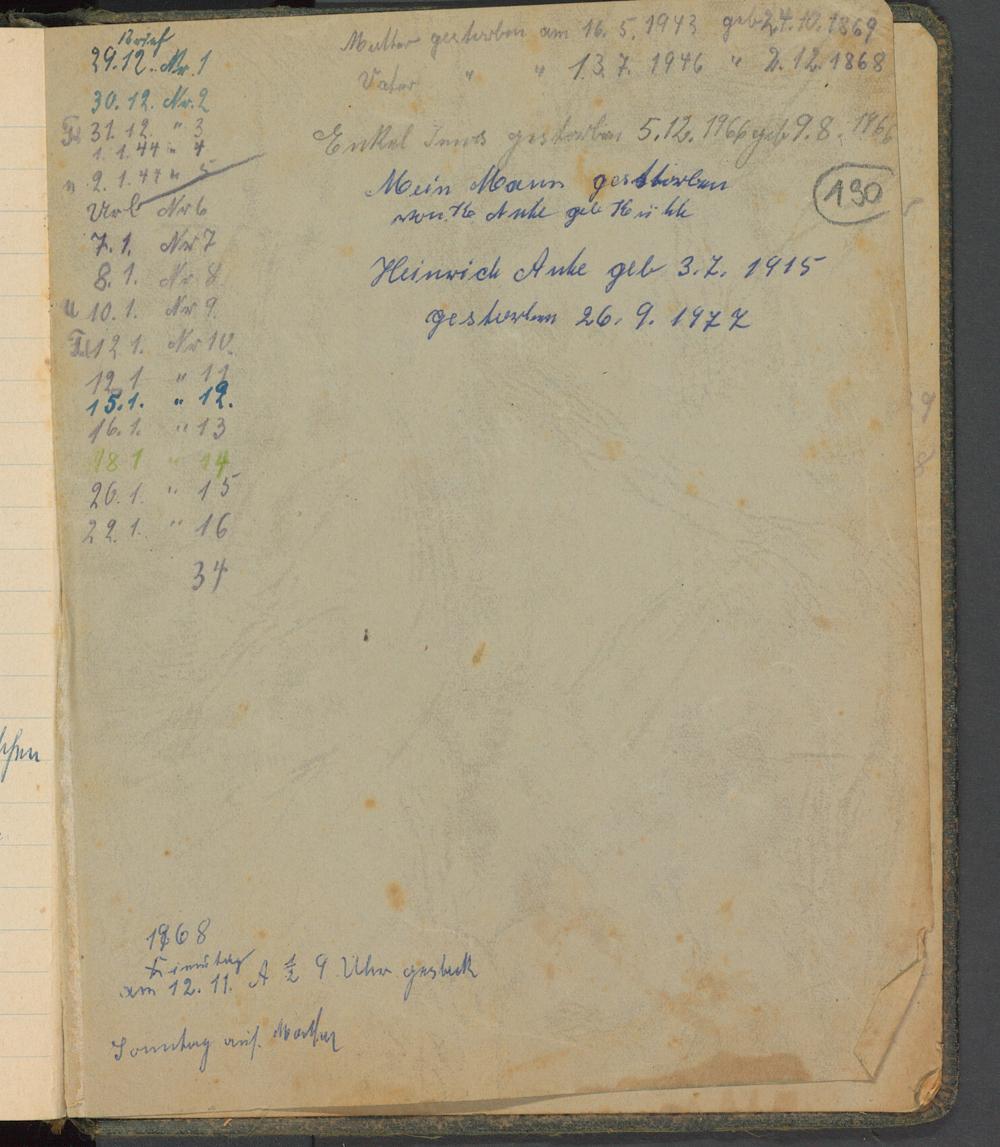 Brief
29.12. Nr. 1
30.12. Nr. 2
31.12. " 3
1.1.44 " 4
" 2.1.44 " 5
Url Nr 6
7.1. Nr 7
8.1. Nr 8
u 10.1. Nr 9.
12.1. Nr 10.
12.1 " 11
15.1. " 12.
16.1. " 13
18 1 " 14
20.1. " 15
22.1. " 16
34
Mutter gestorben am 16.5.1943 geb 24.10.1869
Vater " " 13.7.1946 " 2.12.1868
Enkel gestorben 5.12.1966 geb 9.8.1966
Mein Mann gestorben
geb
190
Heinrich Anke geb 3.7.1915
gestorben 26.9.1977
1968
Dienstag
am 12.11. A ½ 9 Uhr
Sonntag auf